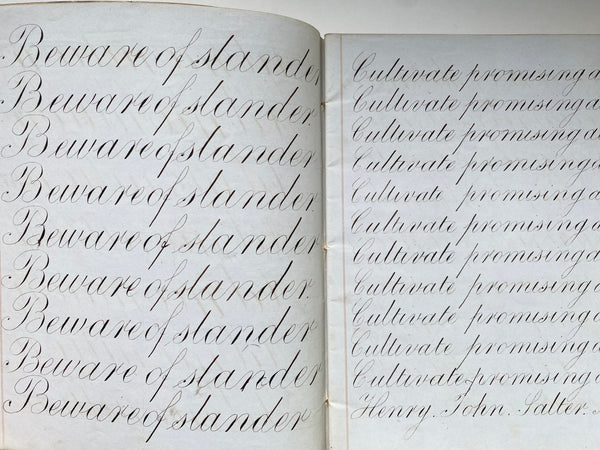 Beware of slander
Beware of slander
Beware of slander
Beware of slander.
Beware of slander
Beware of slander.
Beware of slander
Beware of slander
Beware of slander
Cultivate promising a
Cultivate promising a
Cultivate promising a
Cultivate promising a
Cultivate promising a
Cultivate promising a
Cultivate promising a
Cultivate promising a
Cultivate promising a
Cultivate promising a
Cultivate promising a
Henry. John. Salter.